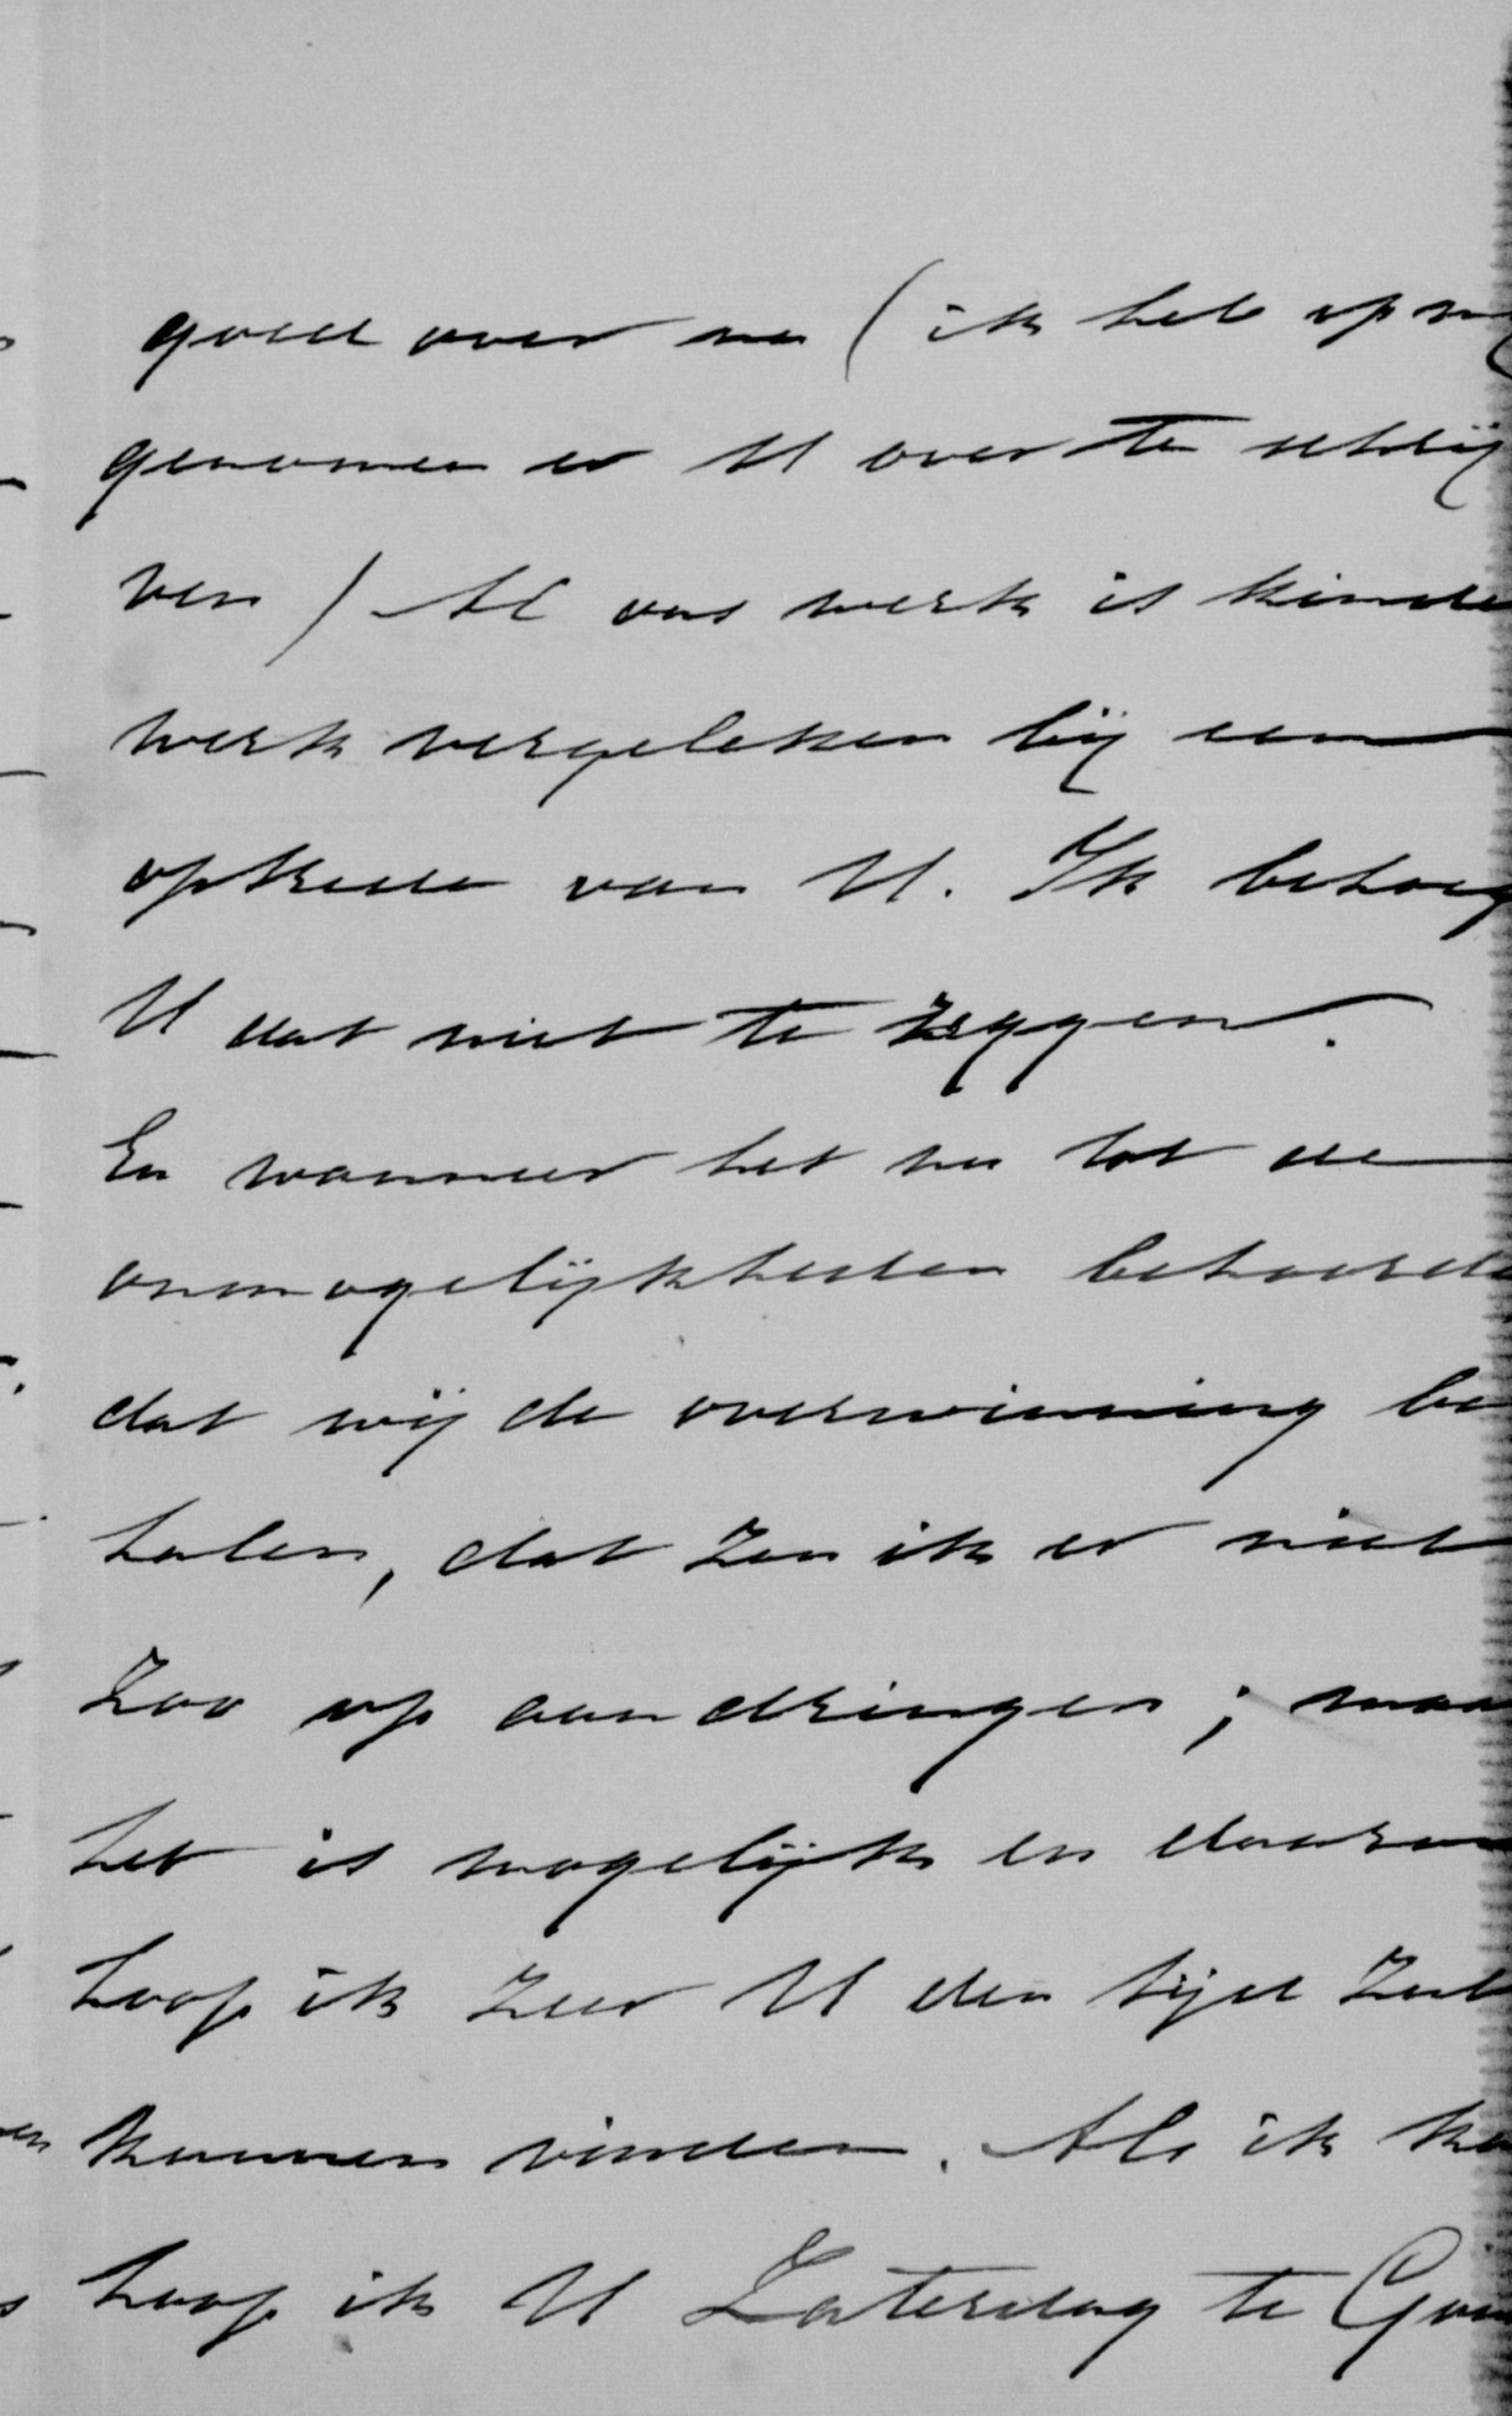 goed over na (ik heb op m
genomen er U over te schrij
ven) Al ons werk is kinde
werk vergeleken bij een
optreden van U. Ik behoeg
U dat niet te zeggen.
En wanneer het nu tot de
onmogelijkheden behoorde
dat wij de overwinning be
halen, dat zou ik er niet
zoo op aandringen; maa
het is mogelijk en daarom
hoop ik zeer U den tijd zult
kunnen vinden. Als ik ka
hoop ik U Zaterdag te Gou